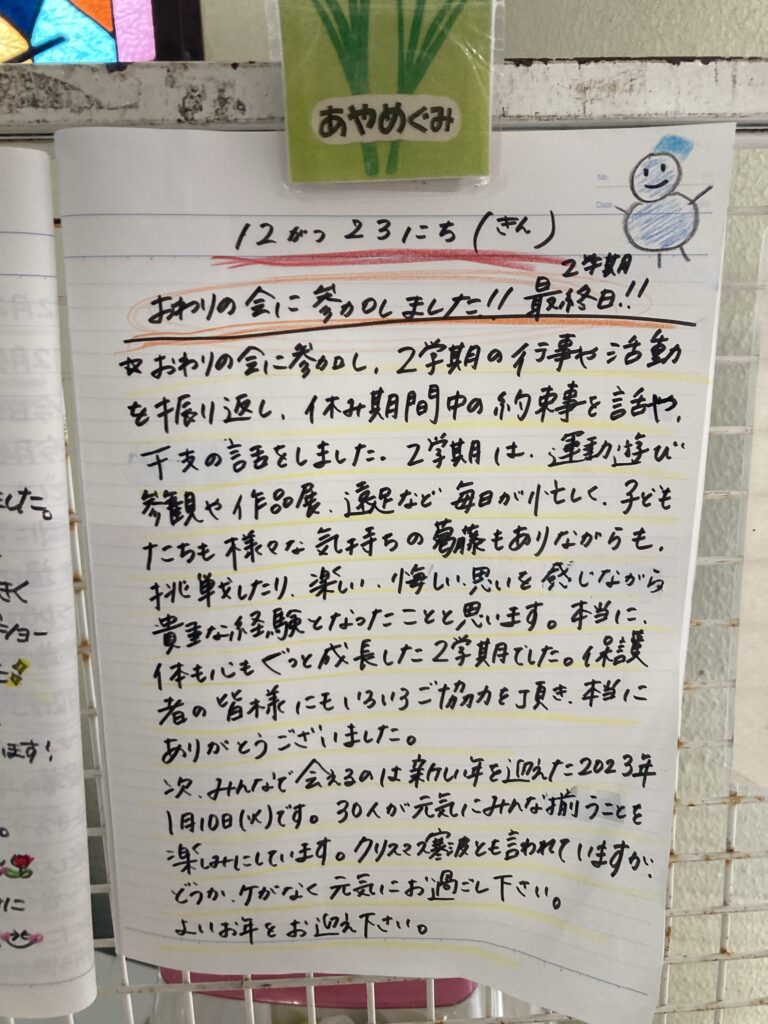 あやめぐみ
No.
Date
12がつ 23にち (きん)
2学期
おわりの会に参加しました!! 最終日!!
☆おわりの会に参加し、2学期の行事や活動
を振り返し、休み期間中の約束事を話や、
干支の話をしました。2学期は、運動遊び
参観や作品展、遠足など毎日が忙しく、子ども
たちも様々な気持ちの葛藤もありながらも、
挑戦したり、楽しい、悔しい思いを感じながら
貴重な経験となったことと思います。本当に、
体も心もぐっと成長した2学期でした。保護
者の皆様にもいろいろご協力を頂き、本当に
ありがとうございました。
次、みんなで会えるのは新しい年を迎えた2023年
1月10日(火)です。30人が元気にみんな揃うことを
楽しみにしています。クリスマス寒波とも言われていますが、
どうか、ケガなく元気にお過ごし下さい。
よいお年をお迎え下さい。
ました。
きく
ショー
た
ます!
。
に